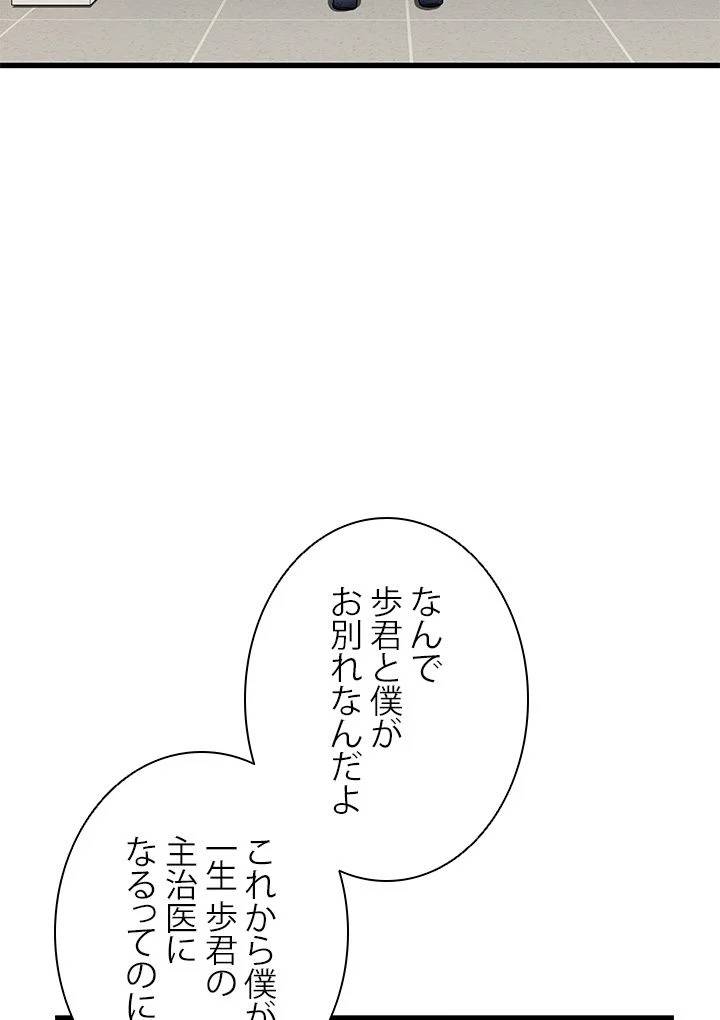 なんで
歩君と僕が
お別れなんだよ
これから僕が
一生 歩君の
主治医に
なるってのに